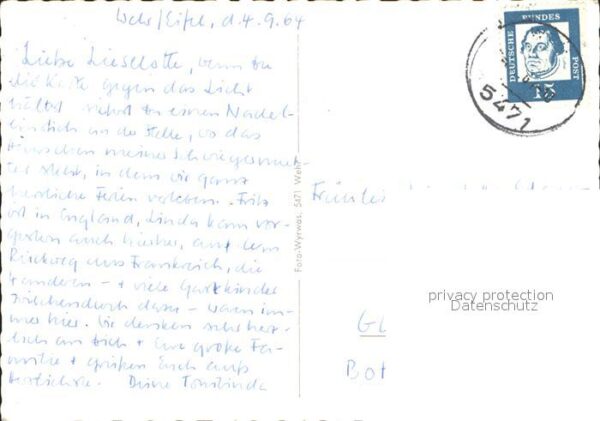 Wehr/Eifel, d. 4.9.64
Liebe Lieselotte, wenn Du
die Karte gegen das Licht
hältst siehst Du einen Nadel-
einstich an der Stelle, wo das
Häuschen meiner Schwiegermut-
ter steht, in dem wir ganz
herrliche Ferien verleben. Fritz
ist in England, Linda kam vor-
gestern auch hierher, auf dem
Rückweg aus Frankreich, die
4 andern - + viele Gastkinder
zwischendurch dazu - waren im-
mer hier. Wir denken sehr herz-
lich an Dich + Eure große Fa-
milie + grüßen Euch aufs
herzlichste. Deine
Foto-Wyrwas, 5471 Wehr
DEUTSCHE BUNDESPOST
15
5471
Fräulein
privacy protection
Datenschutz
Gl
Bot